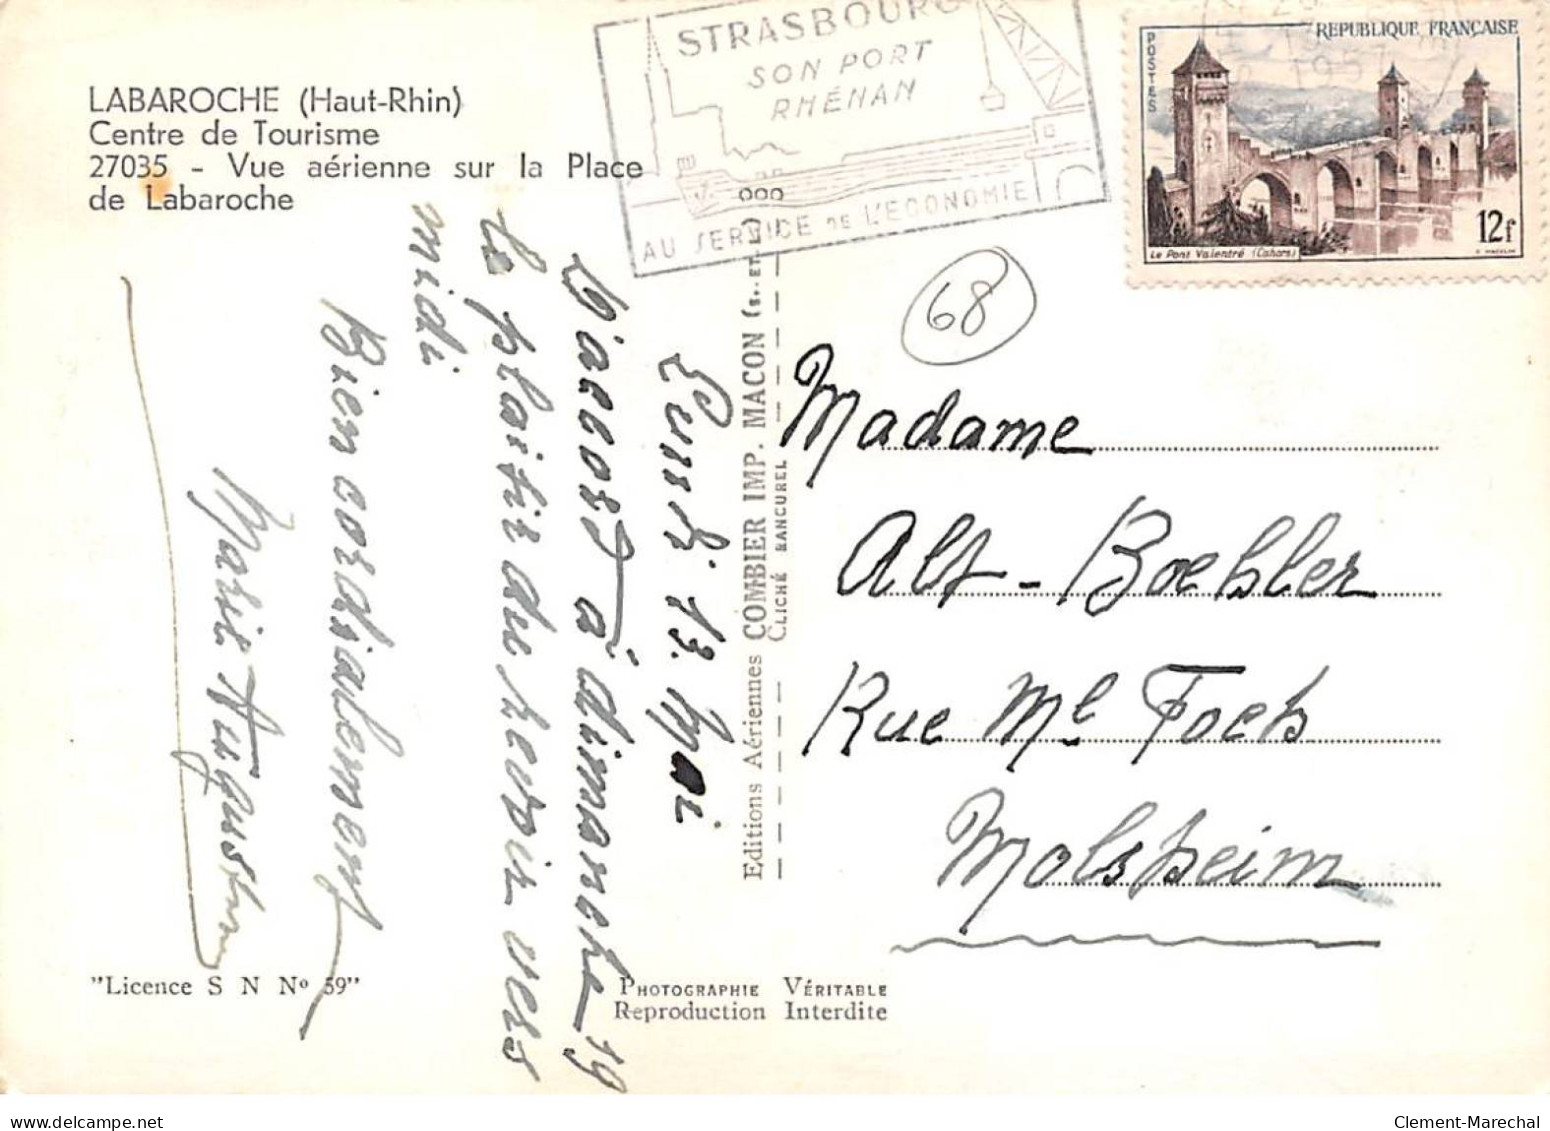 LABAROCHE (Haut-Rhin)
Centre de Tourisme
27035 - Vue aérienne sur la Place
de Labaroche
STRASBOURG
SON PORT
RHÉNAN
AU SERVICE DE L'ECONOMIE
REPUBLIQUE FRANÇAISE
POSTES
1957
12f
Le Pont Valentré (Cahors)
68
Lundi 13. Mai
D'accord à dimanche 19
le plaisir de revoir vers
midi
Bien cordialement
Marie
Editions Aériennes COMBIER IMP. MACON (S.-ET-L.)
CLICHÉ RANCUREL
Madame
Alt-Boehler
Rue Ml Foch
Molsheim
"Licence S N No 59"
PHOTOGRAPHIE VÉRITABLE
Reproduction Interdite
Clement-Marechal